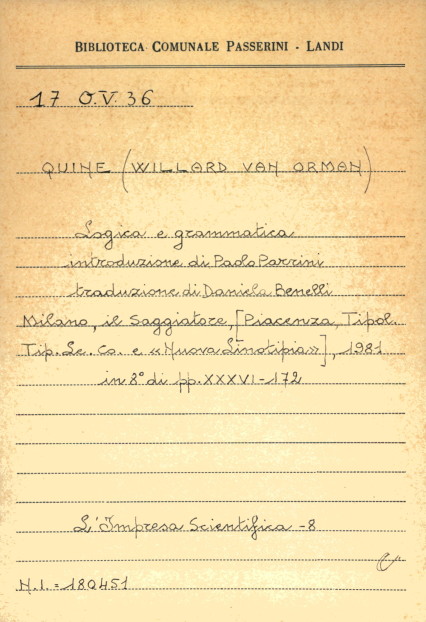 BIBLIOTECA COMUNALE PASSERINI - LANDI
17 O.V. 36
QUINE (WILLARD VAN ORMAN)
Logica e grammatica
introduzione di Paolo Parrini
traduzione di Daniela Benelli
Milano, il Saggiatore, [Piacenza, Tipol.
Tip. Le. Co. e «Nuova Linotipia»], 1981
in 8° di pp. XXXVI-172
L'Impresa Scientifica -8
N.I. = 180451